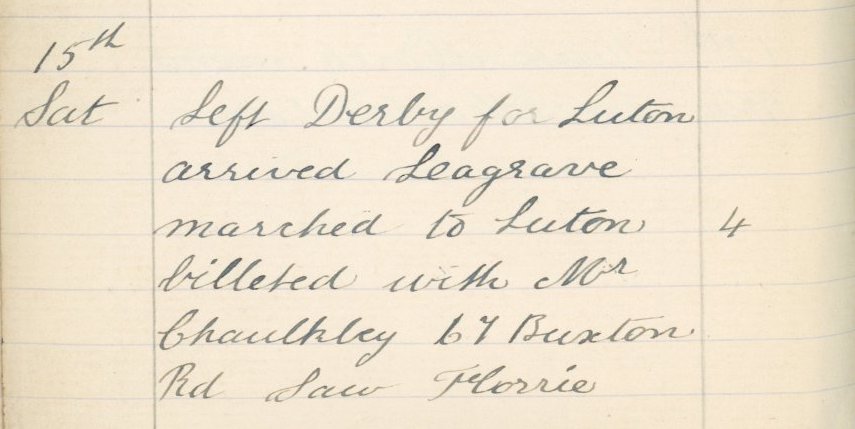 15th
Sat Left Derby for Luton
arrived Leagrave
marched to Luton 4
billeted with Mr
Chaulkley 67 Buxton
Rd Saw Florrie